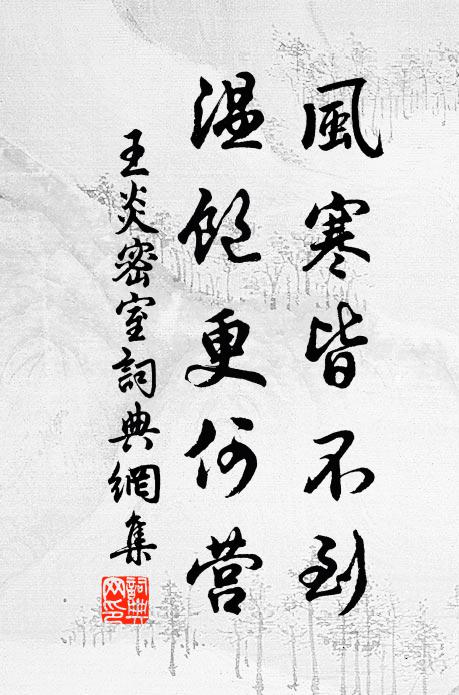 風寒皆不到
温飽更何营
王炎密室詞典網集
詞典